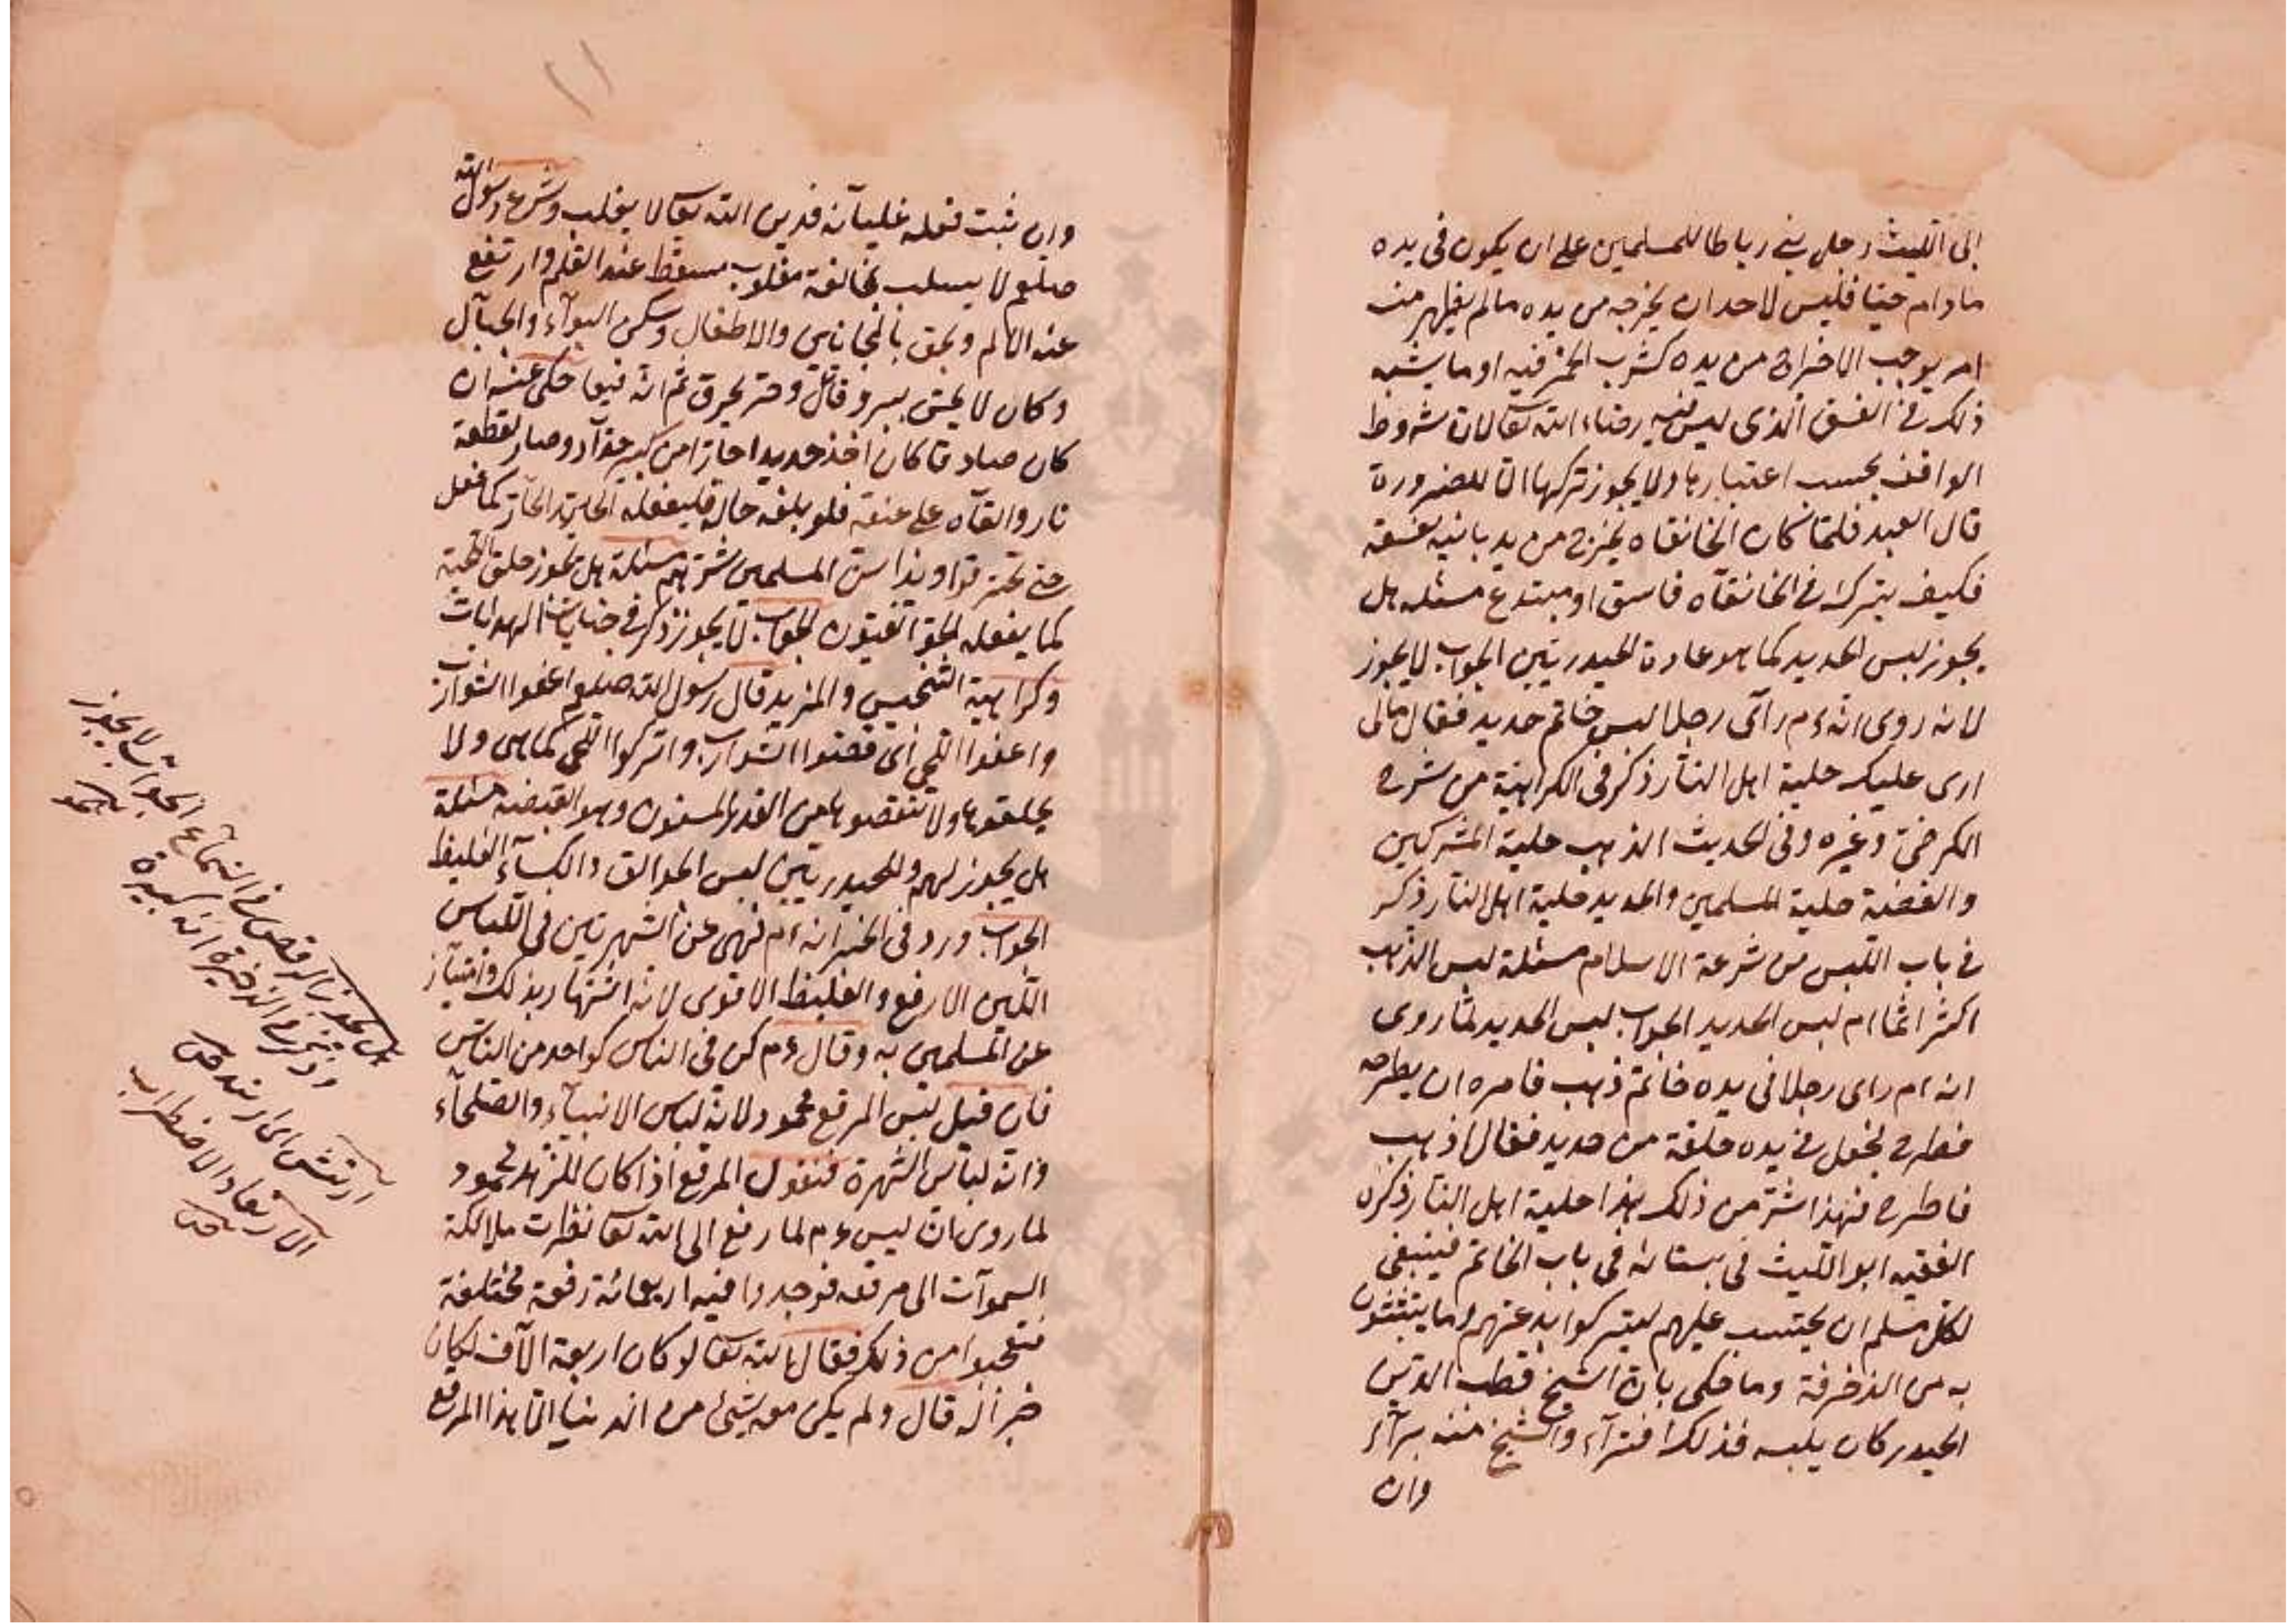 ابى الليث رجل بنى رباطا للمسلمين على ان يكون فى يده
مادام حيا فليس لاحد ان يخرجه من يده مالم يظهر منه
امر يوجب الاخراج من يده كشرب الخمر فيه او ما يشبه
ذلك من الفسق الذى ليس فيه رضاء الله تعالى لان شروط
الواقف يجب اعتبارها ولا يجوز تركها الا للضرورة
قال العبد فلما كان الخانقاه يخرج من يد بانيه بفسقه
فكيف يترك فى الخانقاه فاسق او مبتدع مسئله هل
يجوز لبس الحديد كما هو عادة الحيدريين الجواب لا يجوز
لانه روى انه ءم رآى رجلا لبس خاتم حديد فقال مالى
ارى عليك حلية اهل النار ذكر فى الكراهية من شرح
الكرخى وغيره وفى الحديث الذهب حلية المشركين
والفضة حلية المسلمين والحديد حلية اهل النار ذكر
فى باب اللبس من شرعة الاسلام مسئلة لبس الذهب
اكثر اثما ام لبس الحديد الجواب لبس الحديد لما روى
انه ءم راى رجلا فى يده خاتم ذهب فامره ان يطرحه
فطرح فجعل فى يده حلقة من حديد فقال اذهب
فاطرح فهذا شر من ذلك هذا حلية اهل النار ذكره
الفقيه ابو الليث فى بستانه فى باب الخاتم فينبغى
لكل مسلم ان يحتسب عليهم ليتركوا بدعتهم وما يتشبثون
به من الزخرفة وما حكى بان الشيخ قطب الدين
الحيدر كان يلبسه فذلك افتراء والشيخ منه براء
وان
وان ثبت فعله غلبيا فدين الله تعالى لا يغلب وشرع رسول الله
صلعم لا يسلب بمخالفة مغلوب سقط عنه القلم وارتفع
عنه الالم ولحق بالمجانين والاطفال وسكن البوآء والجبآل
وكان لا يحس ببرد قاتل وحر يحرق ثم انه فيما حكى عنه ان
كان صادقا كان اخذ حديدا حارا من كير حداد وصار كقطعة
نار والقاه على عنقه فلو بلغه حاله فليفعله الحديد الحار كما فعل
حتى تحترقوا ونذا من المسلمين شرهم مسئلة هل يجوز حلق اللحية
كما يفعله الجوالقيون الجواب لا يجوز ذكر فى جنايات الهداية
وكراهية التجنيس والمزيد قال رسول الله صلعم احفوا الشوارب
واعفوا اللحى اى قصوا الشوارب واتركوا اللحى كما هى ولا
تحلقوها ولا تنقصوها من القدر المسنون وهو القبضة مسئلة
هل يجوز لهم وللحيدريين لبس الجوالق والكساء الغليظ
الجواب ورد فى الخبر انه ءم نهى عن الشهرتين فى اللباس
اللين الارفع والغليظ الاقوى لانه اشتهار بذلك وامتياز
عن المسلمين به وقال ءم كن فى الناس كواحد من الناس
فان قيل لبس المرقع محمود لانه لباس الانبياء والصلحاء
وانه لباس الشهرة فنقول المرقع اذا كان للزهد محمود
لما روى ان عيسى ءم لما رفع الى الله تعالى نظرت ملائكة
السموآت الى مرقعه فوجدوا فيه اربعمائة رقعة مختلفة
فتعجبوا من ذلك فقال الله تعالى لو كان اربعة الآف لكان
خيرا له قال ولم يكن معه شئ من الدنيا الا هذا المرقع
هل يجوز الرقص فى السماع الجواب لا يجوز
وذكر فى الذخيرة انه كبيرة
ارتعش اى ارتعد
الارتعاد الاضطراب